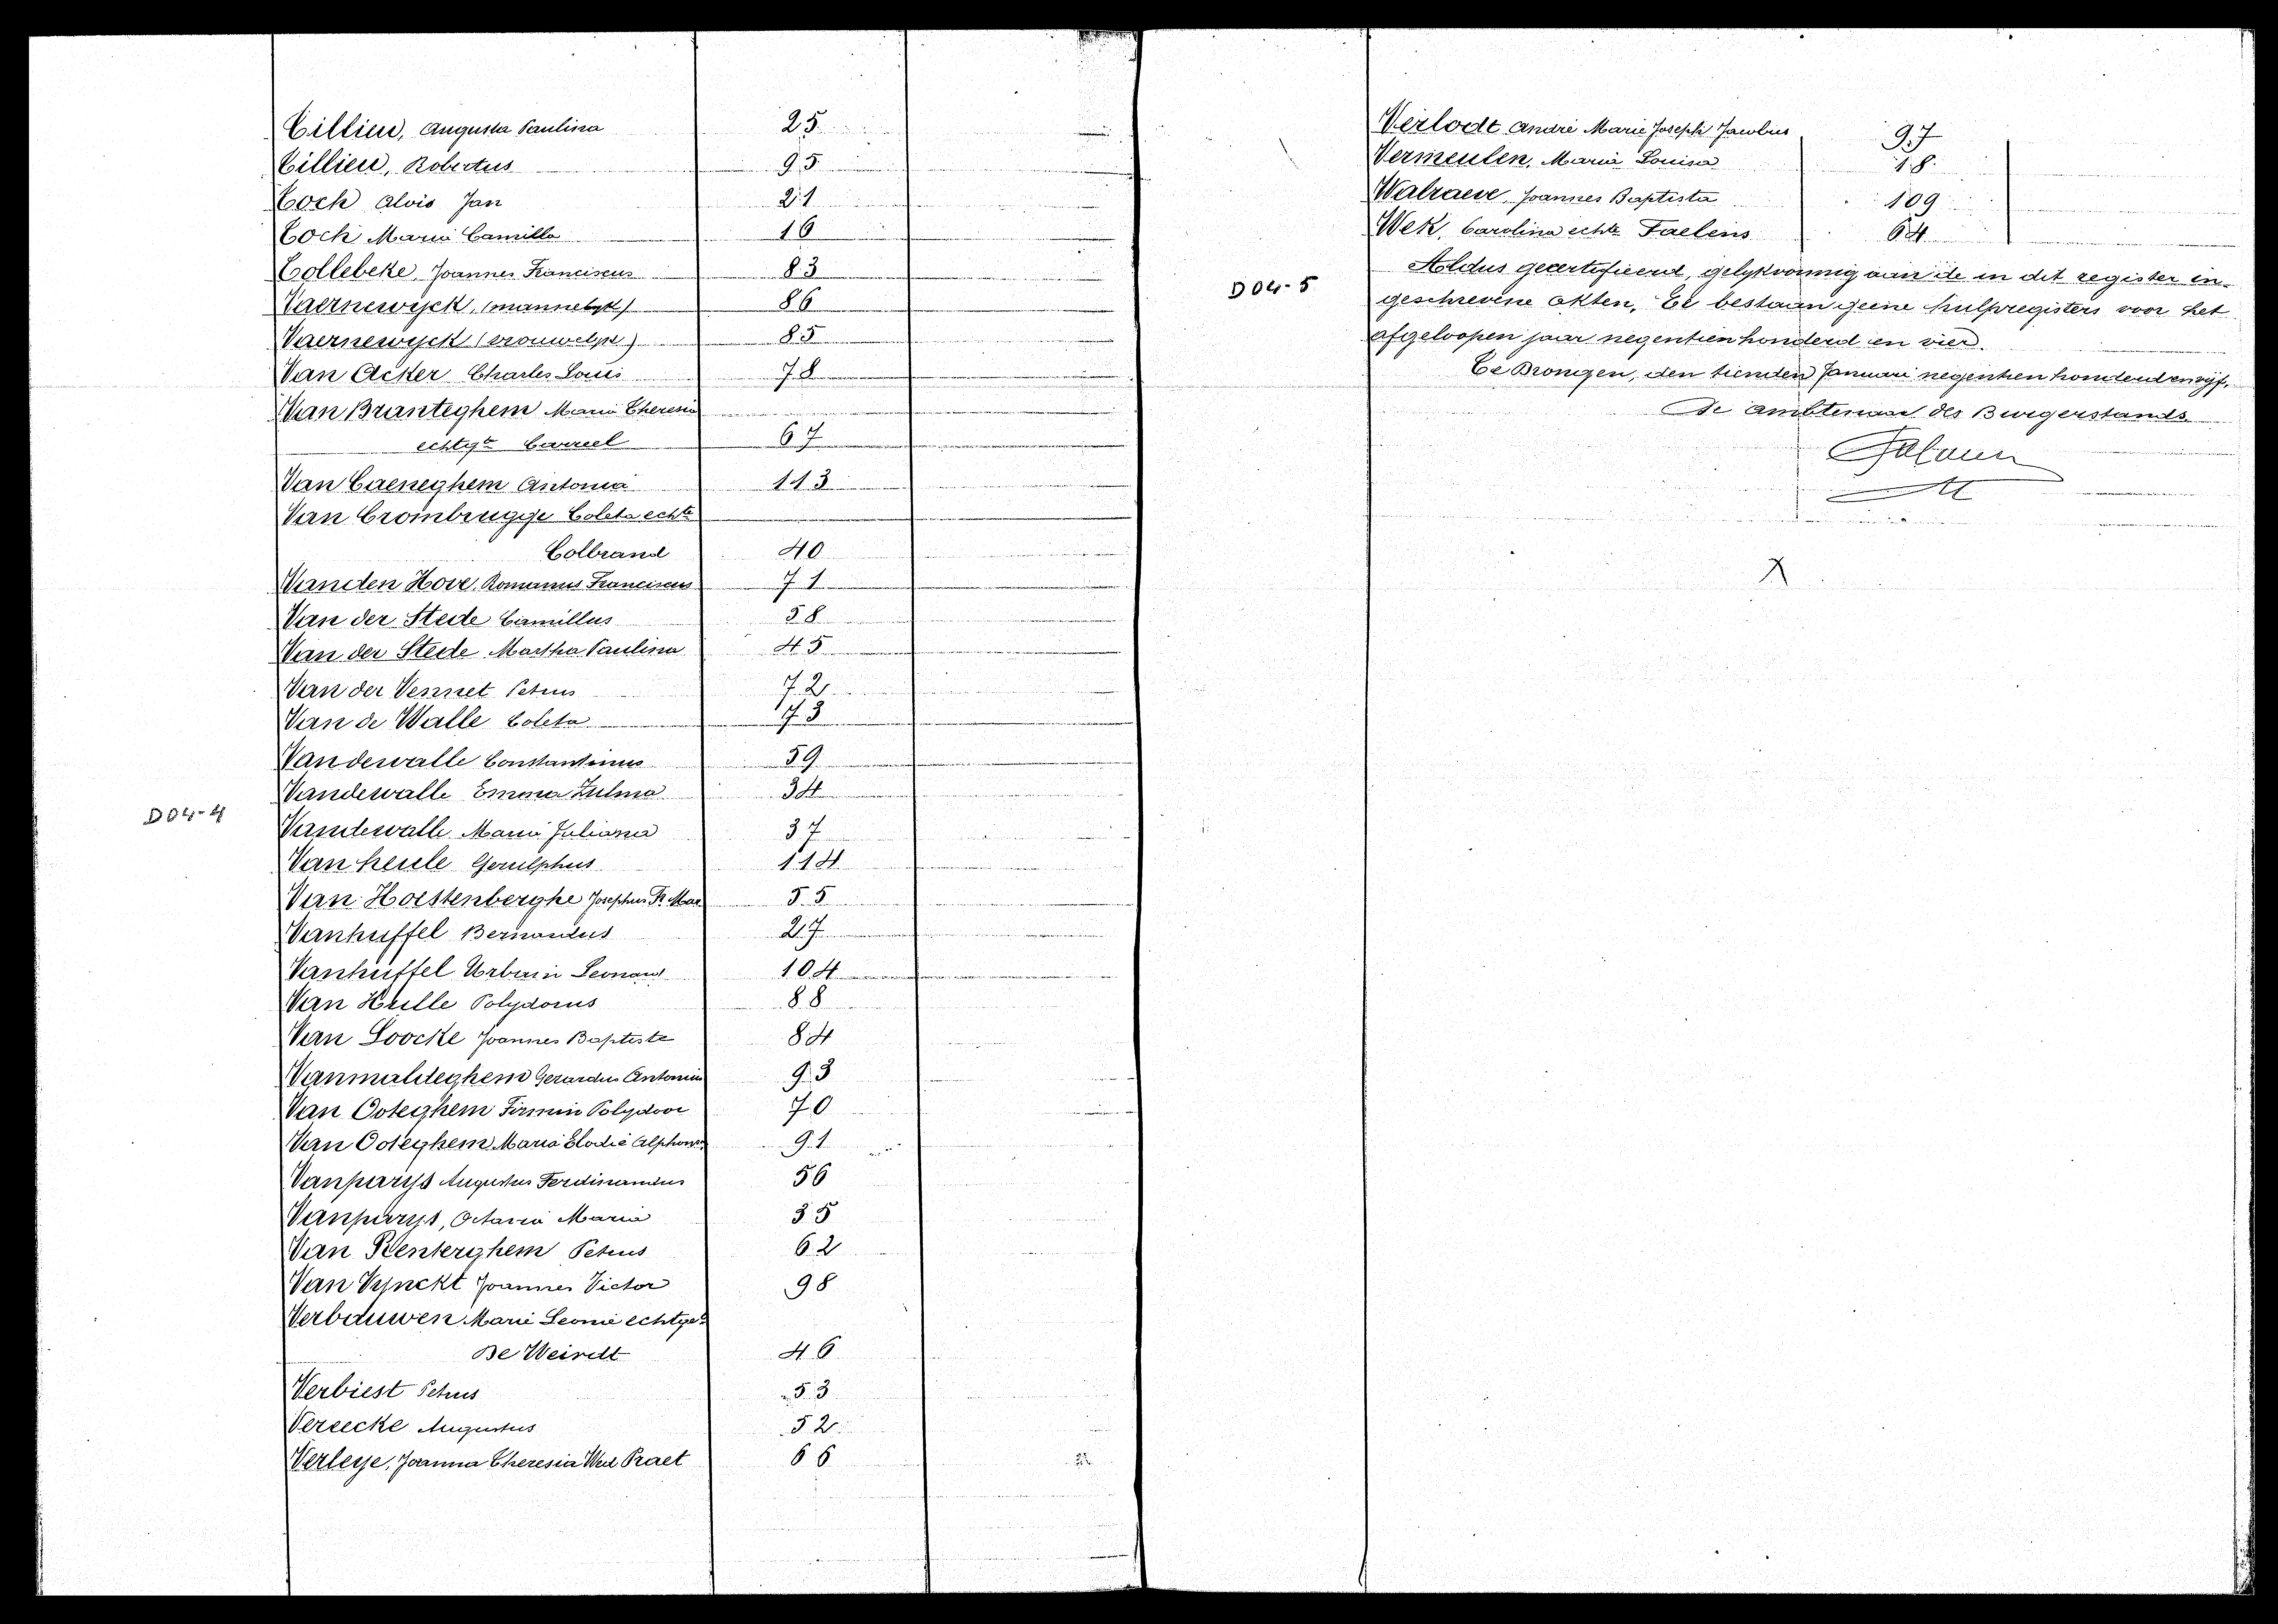 Tillieu, Augusta Paulina 25
Tillieu, Robertus 95
Toch Alois Jan 21
Toch Maria Camilla 16
Tollebeke, Joannes Franciscus 83
Vaernewyck, (mannelyk) 86
Vaernewyck (vrouwelyk) 85
Van Acker Charles Louis 78
Van Branteghem Maria Theresia
echtgte Carreel 67
Van Caeneghem Antonia 113
Van Crombrugge Coleta echte
Colbrand 40
Vanden Hove, Romanus Franciscus 71
Van der Stede Camillus 58
Van der Stede Martha Paulina 45
Van der Vennet Petrus 72
Van de Walle Coleta 73
Vandewalle Constantinus 59
Vandewalle Emma Zulma 34
D04-4
Vandewalle Maria Juliana 37
Van heule Gerulphus 114
Van Hoestenberghe Josephus Fr Mar 55
Vanhuffel Bernardus 27
Vanhuffel Urbain Leonard 104
Van Hulle Polydorus 88
Van Loocke Joannes Baptiste 84
Vanmaldeghem Gerardus Antonius 93
Van Ooteghem Firmin Polydoor 70
Van Ooteghem Maria Elodie Alphons 91
Vanparys Augustus Ferdinandus 56
Vanparys, Octavia Maria 35
Van Renterghem Petrus 62
Van Vynckt Joannes Victor 98
Verbauwen Marie Leonie echtge
De Weirdt 46
Verbiest Petrus 53
Vereecke Augustus 52
Verleye, Joanna Theresia Wed Praet 66
Verlodt André Marie Joseph Jacobus 97
Vermeulen, Maria Louisa 18
Walraeve, Joannes Baptista 109
Wek, Carolina echte Faelens 64
D04-5
Aldus gecertifieerd, gelykvormig aan de in dit register in-
geschrevene akten, Er bestaan geene hulpregisters voor het
afgeloopen jaar negentien honderd en vier.
Te Drongen, den tienden Januari negentien honderd en vyf.
De ambtenaar des Burgerstands